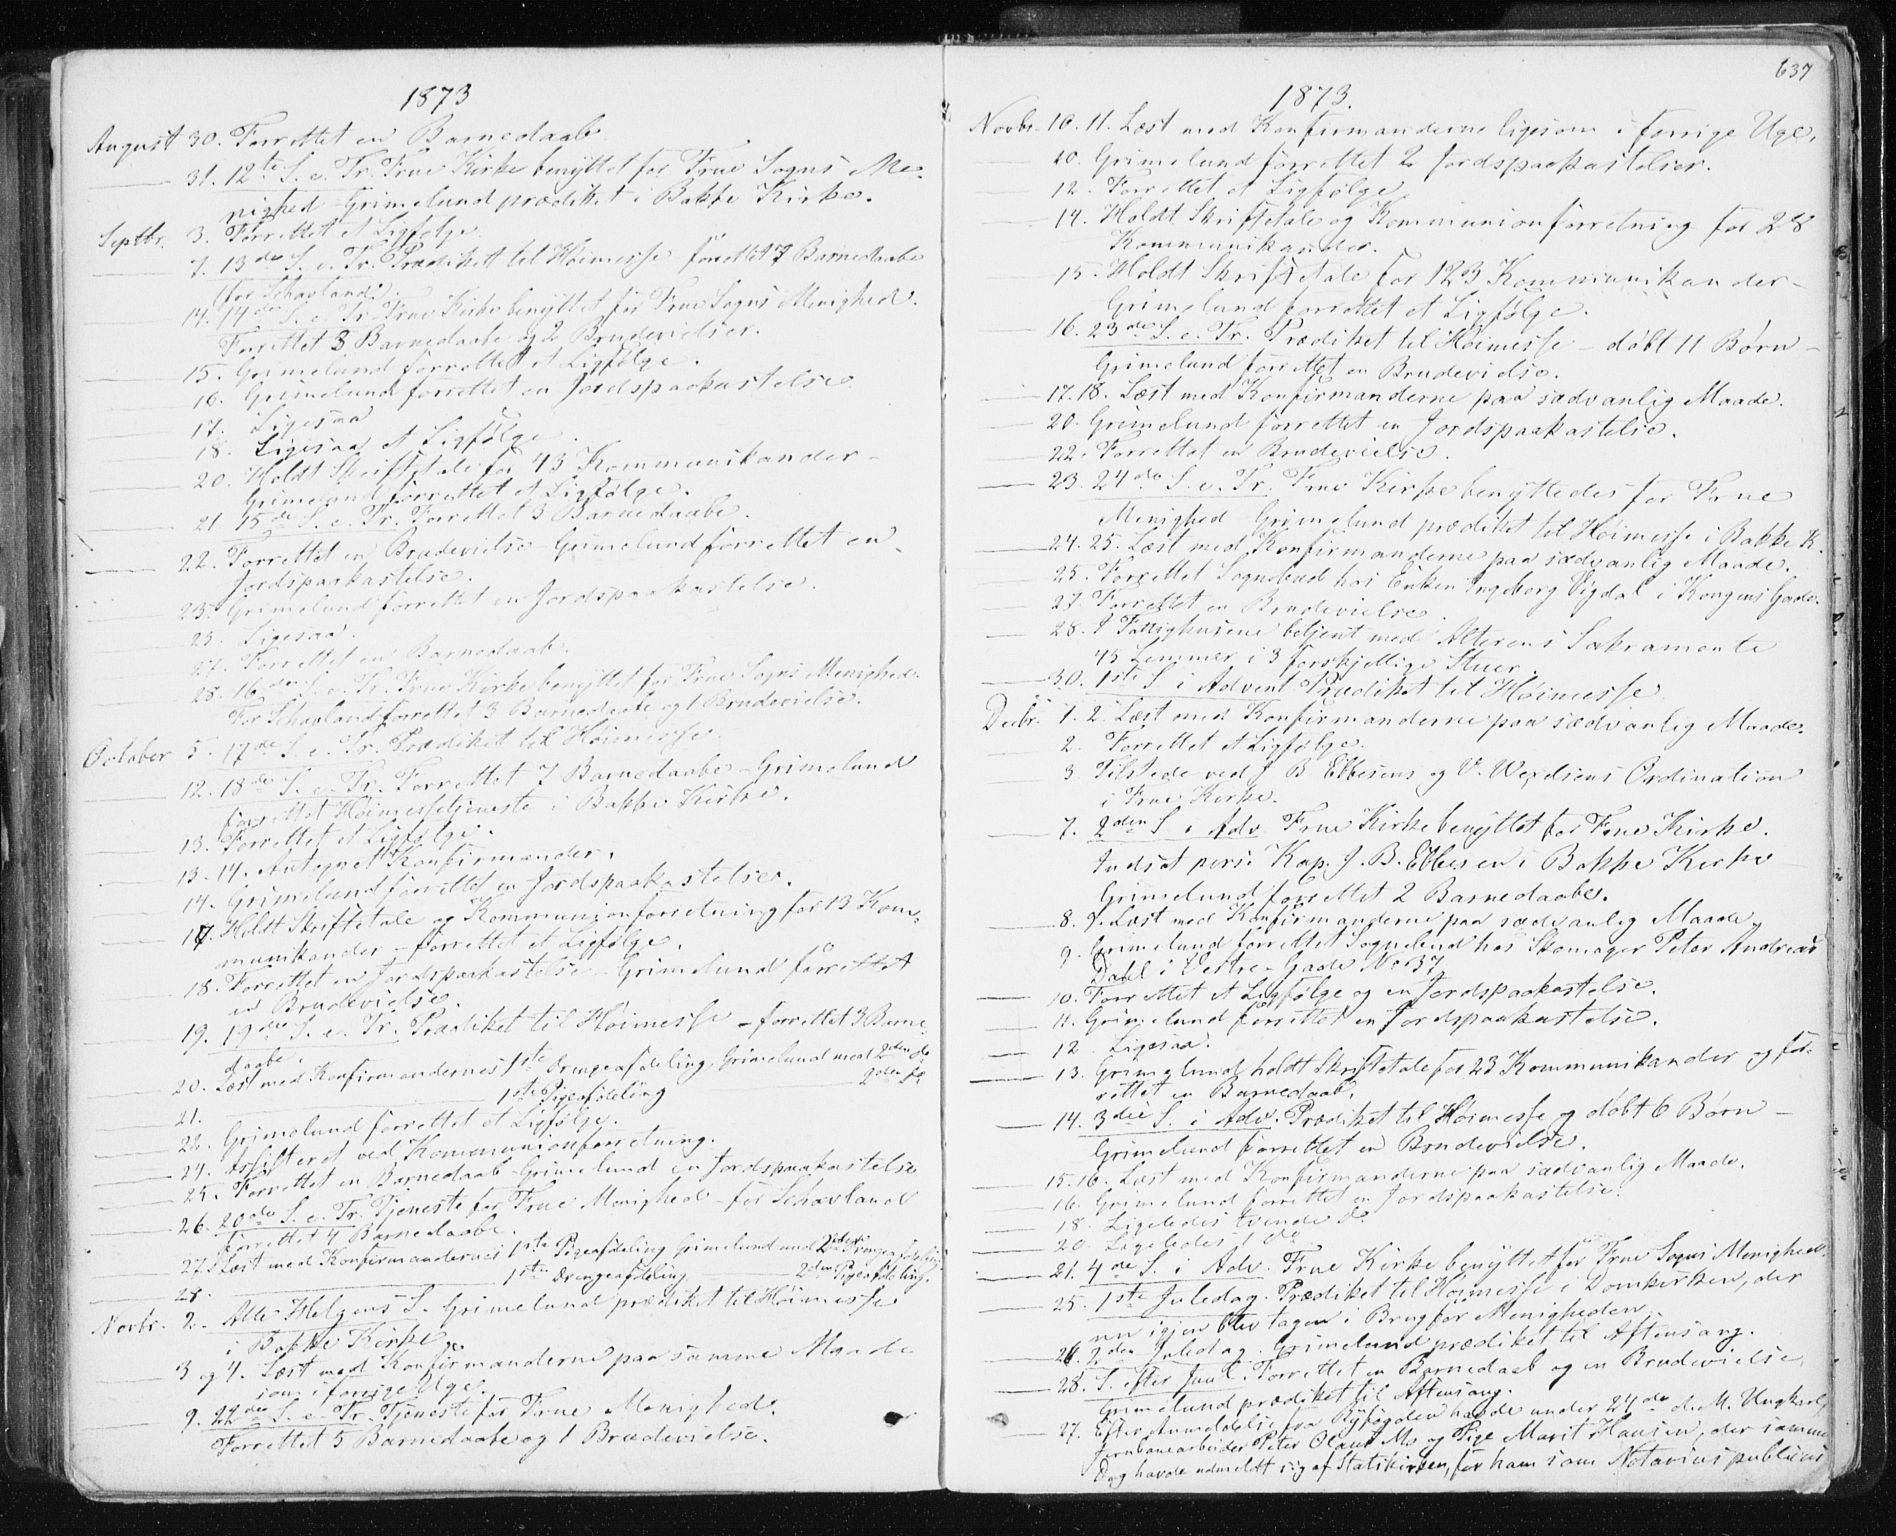 1873
August 30. Forrettet en Barnedaab
31. 12te S. e. Tr. Frue Kirke benyttet for Frue Sogns Me-
nighed – Grimelund prædiket i Bakke Kirke.
Septbr. 3. Forrettet et Ligfølge.
7. 13de S. e. Tr. Prædiket til Høimesse forrettet 7 Barnedaabe
(for Schavland).
14. 14de S. e. Tr. Frue Kirke benyttet for Frue Sogns Menighed.
Forrettet 3 Barnedaabe og 2 Brudevielser.
15. Grimelund forrettet et Ligfølge.
16. Grimelund forrettet en Jordspaakastelse
17. Ligesaa
18. Ligesaa et Ligfølge.
20. Holdt Skriftetale for 43 Kommunikander –
Grimelund forrettet et Ligfølge.
21. 15de S. e. Tr. Forrettet 3 Barnedaabe.
22. Forrettet en Brudevielse – Grimelund forrettet en
Jordspaakastelse.
23. Grimelund forrettet en Jordspaakastelse.
25. Ligesaa.
27. Forrettet en Barnedaab.
28. 16de S. e. Tr. Frue Kirke benyttet for Frue Sogns Menighed.
For Schavland forrettet 3 Barnedaabe og 1 Brudevielse.
October 5. 17de S. e. Tr. Prædiket til Høimesse.
12. 18de S. e. Tr. Forrettet 7 Barnedaabe – Grimelund
forrettet Høimessetjeneste i Bakke Kirke.
13. Forrettet et Ligfølge.
13. 14. Antegnet Konfirmander.
14. Grimelund forrettet en Jordspaakastelse.
17. Holdt Skriftetale og Kommunionforretning for 13 Kom-
munikander – forrettet et Ligfølge.
18. Forrettet en Jordspaakastelse – Grimelund forrettet
en Brudevielse.
19. 19de S. e. Tr. Prædiket til Høimesse – forrettet 3 Barne-
daabe.
20. Læst med Konfirmandernes 1ste Drengeafdeling, Grimelund med 2den do
21. 1ste Pigeafdeling 2den do
22. Grimelund forrettet et Ligfølge.
24. Assisteret ved Kommunionforretning.
25. Forrettet en Barnedaab – Grimelund en Jordspaakastelse
26. 20de S. e. Tr. Tjeneste for Frue Menighed – for Schavland
forrettet 4 Barnedaabe.
27. Læst med Konfirmandernes 1ste Pigeafdeling Grimelund med 2den Drengeafdeling
28. 1ste Drengeafdeling 2den Pigeafdeling.
Novbr. 2. Alle Helgens S. Grimelund prædiket til Høimesse
i Bakke Kirke.
3 og 4. Læst med Konfirmanderne paa samme Maade
som i forrige Uge.
9. 22de S. e. Tr. Tjeneste for Frue Menighed.
Forrettet 5 Barnedaabe og 1 Brudevielse.
637
1873.
Novbr. 10. 11. Læst med Konfirmanderne ligesom i forrige Uge.
10. Grimelund forrettet 2 Jordspaakastelser.
12. Forrettet et Ligfølge
14. Holdt Skriftetale og Kommunionforretning for 28
Kommunikander.
15. Holdt Skriftetale for 123 Kommunikander –
Grimelund forrettet et Ligfølge.
16. 23de S. e. Tr. Prædiket til Høimesse – døbt 11 Børn –
Grimelund forrettet en Brudevielse.
17. 18. Læst med Konfirmanderne paa sædvanlig Maade.
20. Grimelund forrettet en Jordspaakastelse.
22. Forrettet en Brudevielse.
23. 24de S. e. Tr. Frue Kirke benyttedes for Frue
Menighed – Grimelund prædiket til Høimesse i Bakke K.
24. 25. Læst med Konfirmanderne paa sædvanlig Maade.
25. Forrettet Sognebud hos Enken Ingeborg Vigdal i Kongens Gade.
27. Forrettet en Brudevielse.
28. I Fattighusene betjent med Alterens Sakramente
45 Lemmer i 3 forskjellige Stuer.
30. 1ste S. i Advent Prædiket til Høimesse.
Decbr. 1. 2. Læst med Konfirmanderne paa sædvanlig Maade.
2. Forrettet et Ligfølge.
3 Tilstede ved J. B. Ebbesens og V. Wexelsens Ordination
i Frue Kirke.
7. 2den S. i Adv. Frue Kirke benyttet for Frue Kirke.
Indsat pers. Kap. J. B. Ebbesen i Bakke Kirke
Grimelund forrettet 2 Barnedaabe.
8. 9. Læst med Konfirmanderne paa sædvanlig Maade.
9. Grimelund forrettet Sognebud hos Skomager Peter Andreas
Dahl i Vestre-Gade No 37
10. Forrettet et Ligfølge og en Jordspaakastelse.
11. Grimelund forrettet en Jordspaakastelse.
12 Ligesaa.
13. Grimelund holdt Skriftetale for 23 Kommunikander og for-
rettet en Barnedaab.
14. 3die S. i Adv. Prædiket til Høimesse og døbt 6 Børn –
Grimelund forrettet en Brudevielse.
15. 16. Læst med Konfirmanderne paa sædvanlig Maade.
16. Grimelund forrettet en Jordspaakastelse.
18. Ligeledes tvende do
20 Ligeledes 1 do
21. 4de S. i Adv. Frue Kirke benyttet for Frue Sogns Menighed.
25. 1ste Juledag. Prædiket til Høimesse i Domkirken, der
nu igjen blev tagen i Brug for Menigheden
26. 2den Juledag. Grimelund prædiket til Aftensang.
28. S. efter Juul. Forrettet en Barnedaab og en Brudevielse,
Grimelund prædiket til Aftensang.
27. Efter Anmeldelse fra Byfogden havde under 24de d. M. Ungkarl
Jernbanearbeider Peter Olaus Mo og Pige Marit Hansen, der samme
Dag havde udmeldt sig af Statskirken, for ham som Notarius publicus